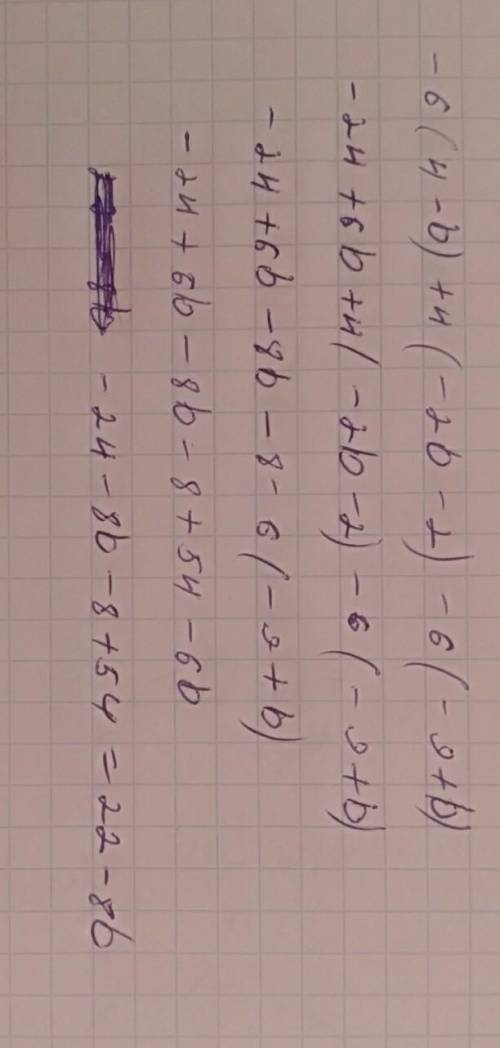 -6(4-b)+4(-2b-2)-6(-9+b)
-24+6b+4(-2b-2)-6(-9+b)
-24+6b-8b-8-6(-9+b)
-24+6b-8b-8+54-6b
-24-8b-8+54=22-8b